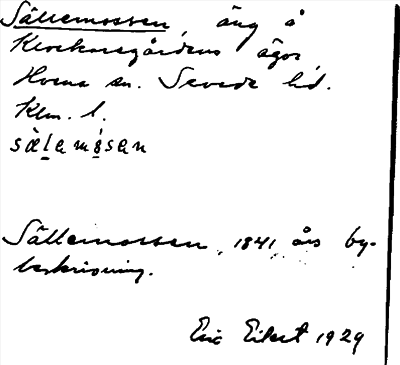 Sällemossen, äng å
Klockaregårdens ägor
sn. Sevede hd.
Klm. l.
sälamåsan
Sällemossen, 1841 års by-
beskrivning.
Eric Eilert 1929